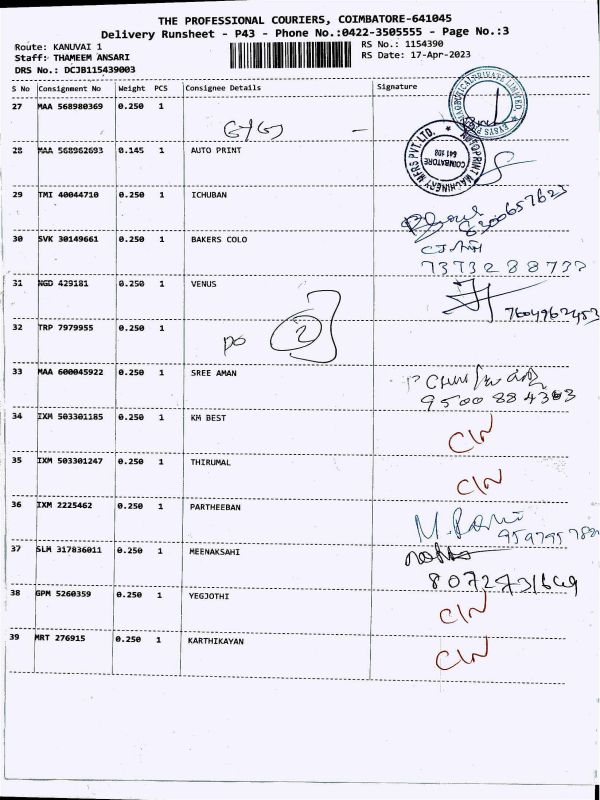 THE PROFESSIONAL COURIERS, COIMBATORE-641045
Delivery Runsheet - P43 - Phone No.:0422-3505555 - Page No.:3
Route: KANUVAI 1
RS No.: 1154390
Staff: THAMEEM ANSARI
RS Date: 17-Apr-2023
DRS No.: DCJB115439003
S No Consignment No Weight PCS Consignee Details Signature
27 MAA 568980369 0.250 1
28 MAA 568962693 0.145 1 AUTO PRINT
AUTOPRINT MACHINERY MFRS PVT. LTD.
COIMBATORE
641 108
29 TMI 40044710 0.250 1 ICHUBAN
6300657623
30 SVK 30149661 0.250 1 BAKERS COLO
7373288733
31 NGD 429181 0.250 1 VENUS
7604962453
32 TRP 7979955 0.250 1
PO 2
33 MAA 600045922 0.250 1 SREE AMAN
9500884303
34 IXM 503301185 0.250 1 KM BEST
CIN
35 IXM 503301247 0.250 1 THIRUMAL
CIN
36 IXM 2225462 0.250 1 PARTHEEBAN
M. Rani
37 SLM 317836011 0.250 1 MEENAKSAHI
38 GPM 5260359 0.250 1 YEGJOTHI
CIN
39 MRT 276915 0.250 1 KARTHIKAYAN
CIN